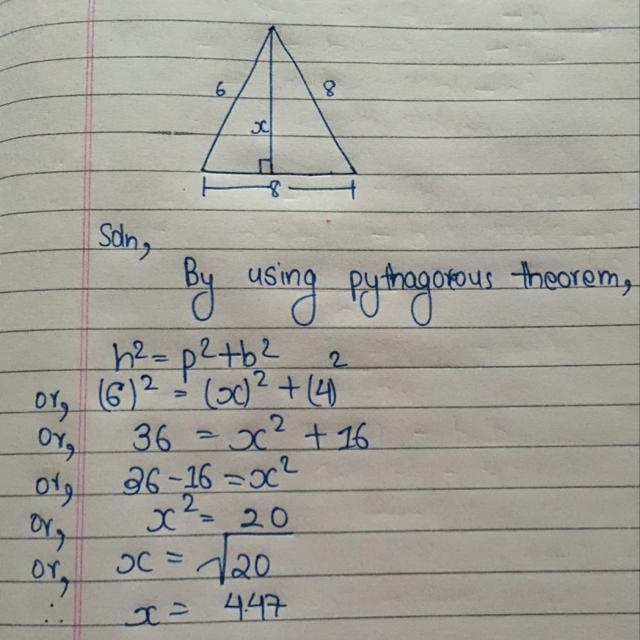 6 8
x
8
Soln,
By using pythagorous theorem,
h² = p² + b²
or, (6)² = (x)² + (4)²
or, 36 = x² + 16
or, 36 - 16 = x²
or, x² = 20
or, x = √20
∴ x = 4.47